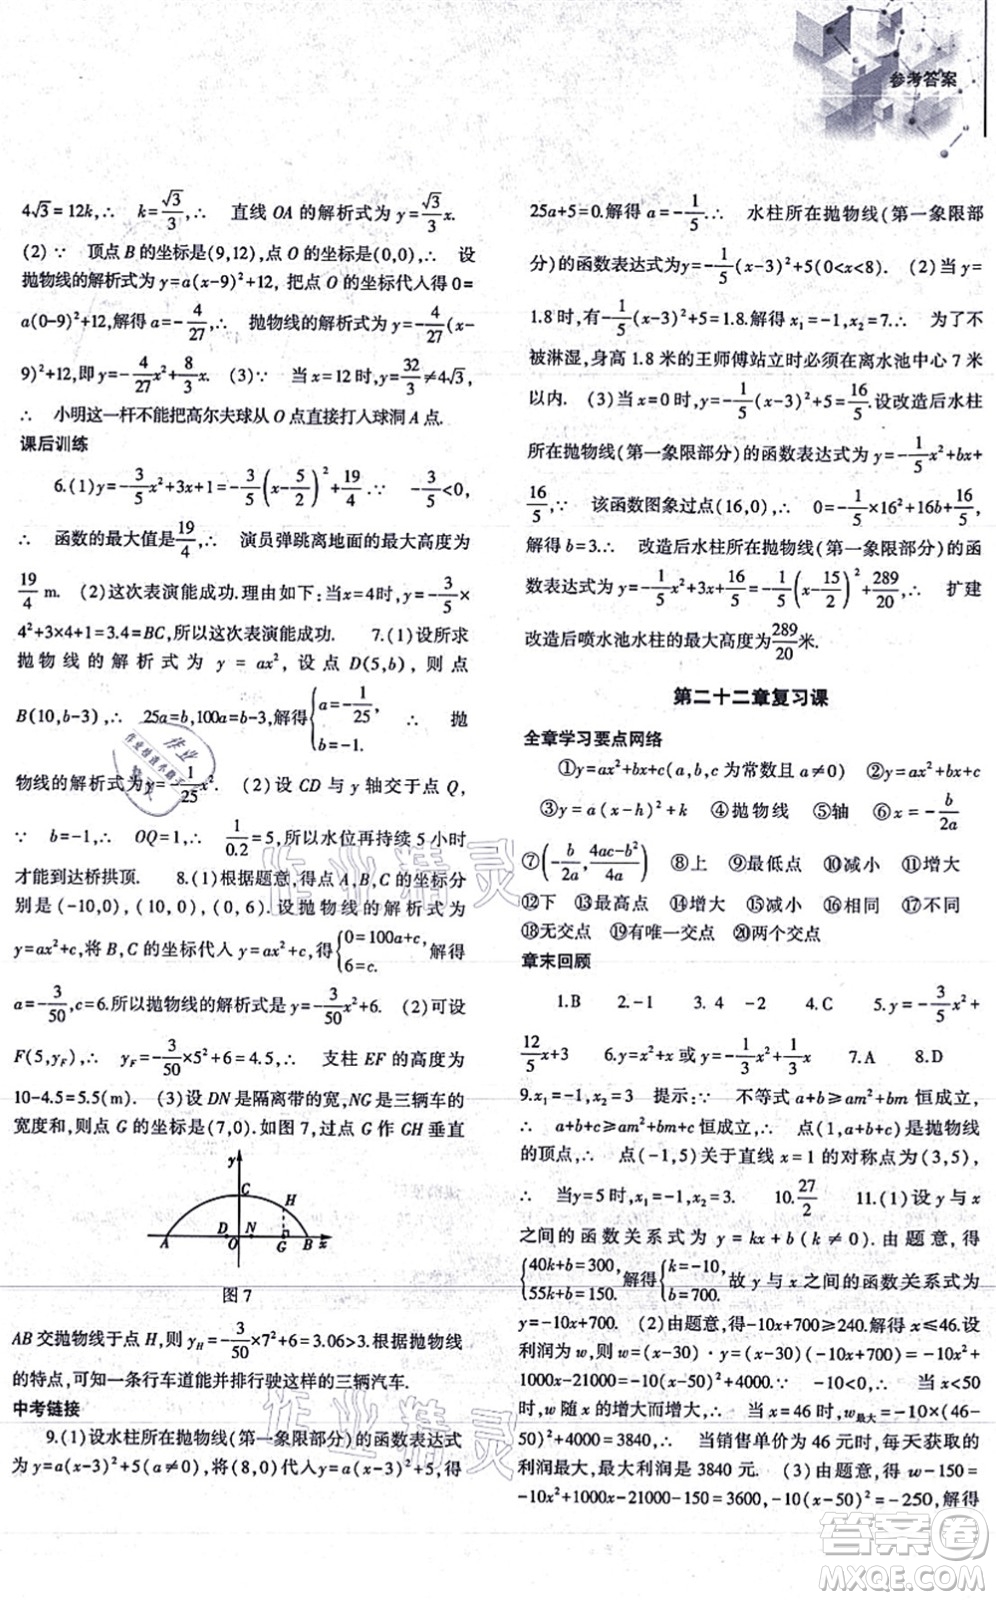 参考答案
4√3=12k,∴ k=√3/3,∴ 直线 OA 的解析式为 y=√3/3 x.
(2)∵ 顶点 B 的坐标是(9,12),点 O 的坐标是(0,0),∴ 设
抛物线的解析式为 y=a(x-9)²+12, 把点 O 的坐标代入得 0=
a(0-9)²+12,解得 a=-4/27,∴ 抛物线的解析式为 y=-4/27(x-
9)²+12,即 y=-4/27x²+8/3x. (3)∵ 当 x=12 时,y=32/3≠4√3,
∴ 小明这一杆不能把高尔夫球从 O 点直接打入球洞 A 点.
课后训练
6.(1)y=-3/5x²+3x+1=-3/5(x-5/2)²+19/4.∵ -3/5<0,
∴ 函数的最大值是19/4,∴ 演员弹跳离地面的最大高度为
19/4 m. (2)这次表演能成功.理由如下:当x=4时,y=-3/5×
4²+3×4+1=3.4=BC,所以这次表演能成功. 7.(1)设所求
抛物线的解析式为 y=ax²,设点 D(5,b),则点
B(10,b-3),∴ 25a=b,100a=b-3,解得{a=-1/25, b=-1. ∴ 抛
物线的解析式为y=-1/25x². (2)设 CD 与 y 轴交于点 Q,
∵ b=-1,∴ OQ=1,∴ 1/0.2=5,所以水位再持续 5 小时
才能到达桥拱顶. 8.(1)根据题意,得点 A,B,C 的坐标分
别是(-10,0),(10,0),(0,6).设抛物线的解析式为
y=ax²+c,将 B,C 的坐标代入,得{0=100a+c, 6=c. 解得
a=-3/50,c=6.所以抛物线的解析式是 y=-3/50x²+6. (2)可设
F(5,y_F),∴ y_F=-3/50×5²+6=4.5,∴ 支柱 EF 的高度为
10-4.5=5.5(m). (3)设 DN 是隔离带的宽,NG 是三辆车的
宽度和,则点 G 的坐标是(7,0).如图 7,过点 G 作 GH 垂直
y
C
H
A D O N G B x
图 7
AB 交抛物线于点 H,则 y_H=-3/50×7²+6=3.06>3.根据抛物线
的特点,可知一条行车道能并排行驶这样的三辆汽车.
中考链接
9.(1)设水柱所在抛物线(第一象限部分)的函数表达式
为 y=a(x-3)²+5(a≠0),将(8,0)代入 y=a(x-3)²+5,得
25a+5=0.解得 a=-1/5.∴ 水柱所在抛物线(第一象限部
分)的函数表达式为y=-1/5(x-3)²+5(0<x<8). (2)当 y=
1.8 时,有-1/5(x-3)²+5=1.8.解得 x₁=-1,x₂=7.∴ 为了不
被淋湿,身高 1.8 米的王师傅站立时必须在离水池中心 7 米
以内. (3)当 x=0 时,y=-1/5(x-3)²+5=16/5.设改造后水柱
所在抛物线(第一象限部分)的函数表达式为 y=-1/5x²+bx+
16/5,∵ 该函数图象过点(16,0),∴ 0=-1/5×16²+16b+16/5,
解得 b=3.∴ 改造后水柱所在抛物线(第一象限部分)的函
数表达式为 y=-1/5x²+3x+16/5=-1/5(x-15/2)²+289/20,∴ 扩建
改造后喷水池水柱的最大高度为289/20米.
第二十二章复习课
全章学习要点网络
①y=ax²+bx+c(a,b,c 为常数且 a≠0) ②y=ax²+bx+c
③y=a(x-h)²+k ④抛物线 ⑤轴 ⑥x=-b/2a
⑦(-b/2a,4ac-b²/4a) ⑧上 ⑨最低点 ⑩减小 ⑪增大
⑫下 ⑬最高点 ⑭增大 ⑮减小 ⑯相同 ⑰不同
⑱无交点 ⑲有唯一交点 ⑳两个交点
章末回顾
1.B 2.-1 3.4 -2 4.C 5.y=-3/5x²+
12/5x+3 6.y=x²+x 或 y=-1/3x²+1/3x 7.A 8.D
9.x₁=-1,x₂=3 提示:∵ 不等式 a+b≥am²+bm 恒成立,
∴ a+b+c≥am²+bm+c 恒成立,∴ 点(1,a+b+c)是抛物线
的顶点,∴ 点(-1,5)关于直线 x=1 的对称点为(3,5),
∴ 当y=5 时,x₁=-1,x₂=3. 10.27/2 11.(1)设 y 与 x
之间的函数关系式为 y=kx+b(k≠0).由题意,得
{40k+b=300, 55k+b=150. 解得{k=-10, b=700. 故 y 与 x 之间的函数关系式为
y=-10x+700. (2)由题意,得-10x+700≥240.解得 x≤46.设
利润为 w,则 w=(x-30)·y=(x-30)(-10x+700)=-10x²+
1000x-21000=-10(x-50)²+4000.∵ -10<0,∴ 当 x<50
时,w 随 x 的增大而增大,∴ 当 x=46 时,w最大=-10×(46-
50)²+4000=3840,∴ 当销售单价为 46 元时,每天获取的
利润最大,最大利润是 3840 元. (3)由题意,得 w-150=
-10x²+1000x-21000-150=3600,-10(x-50)²=-250,解得
作业精灵
作业精灵
答案圈
MXQE.COM